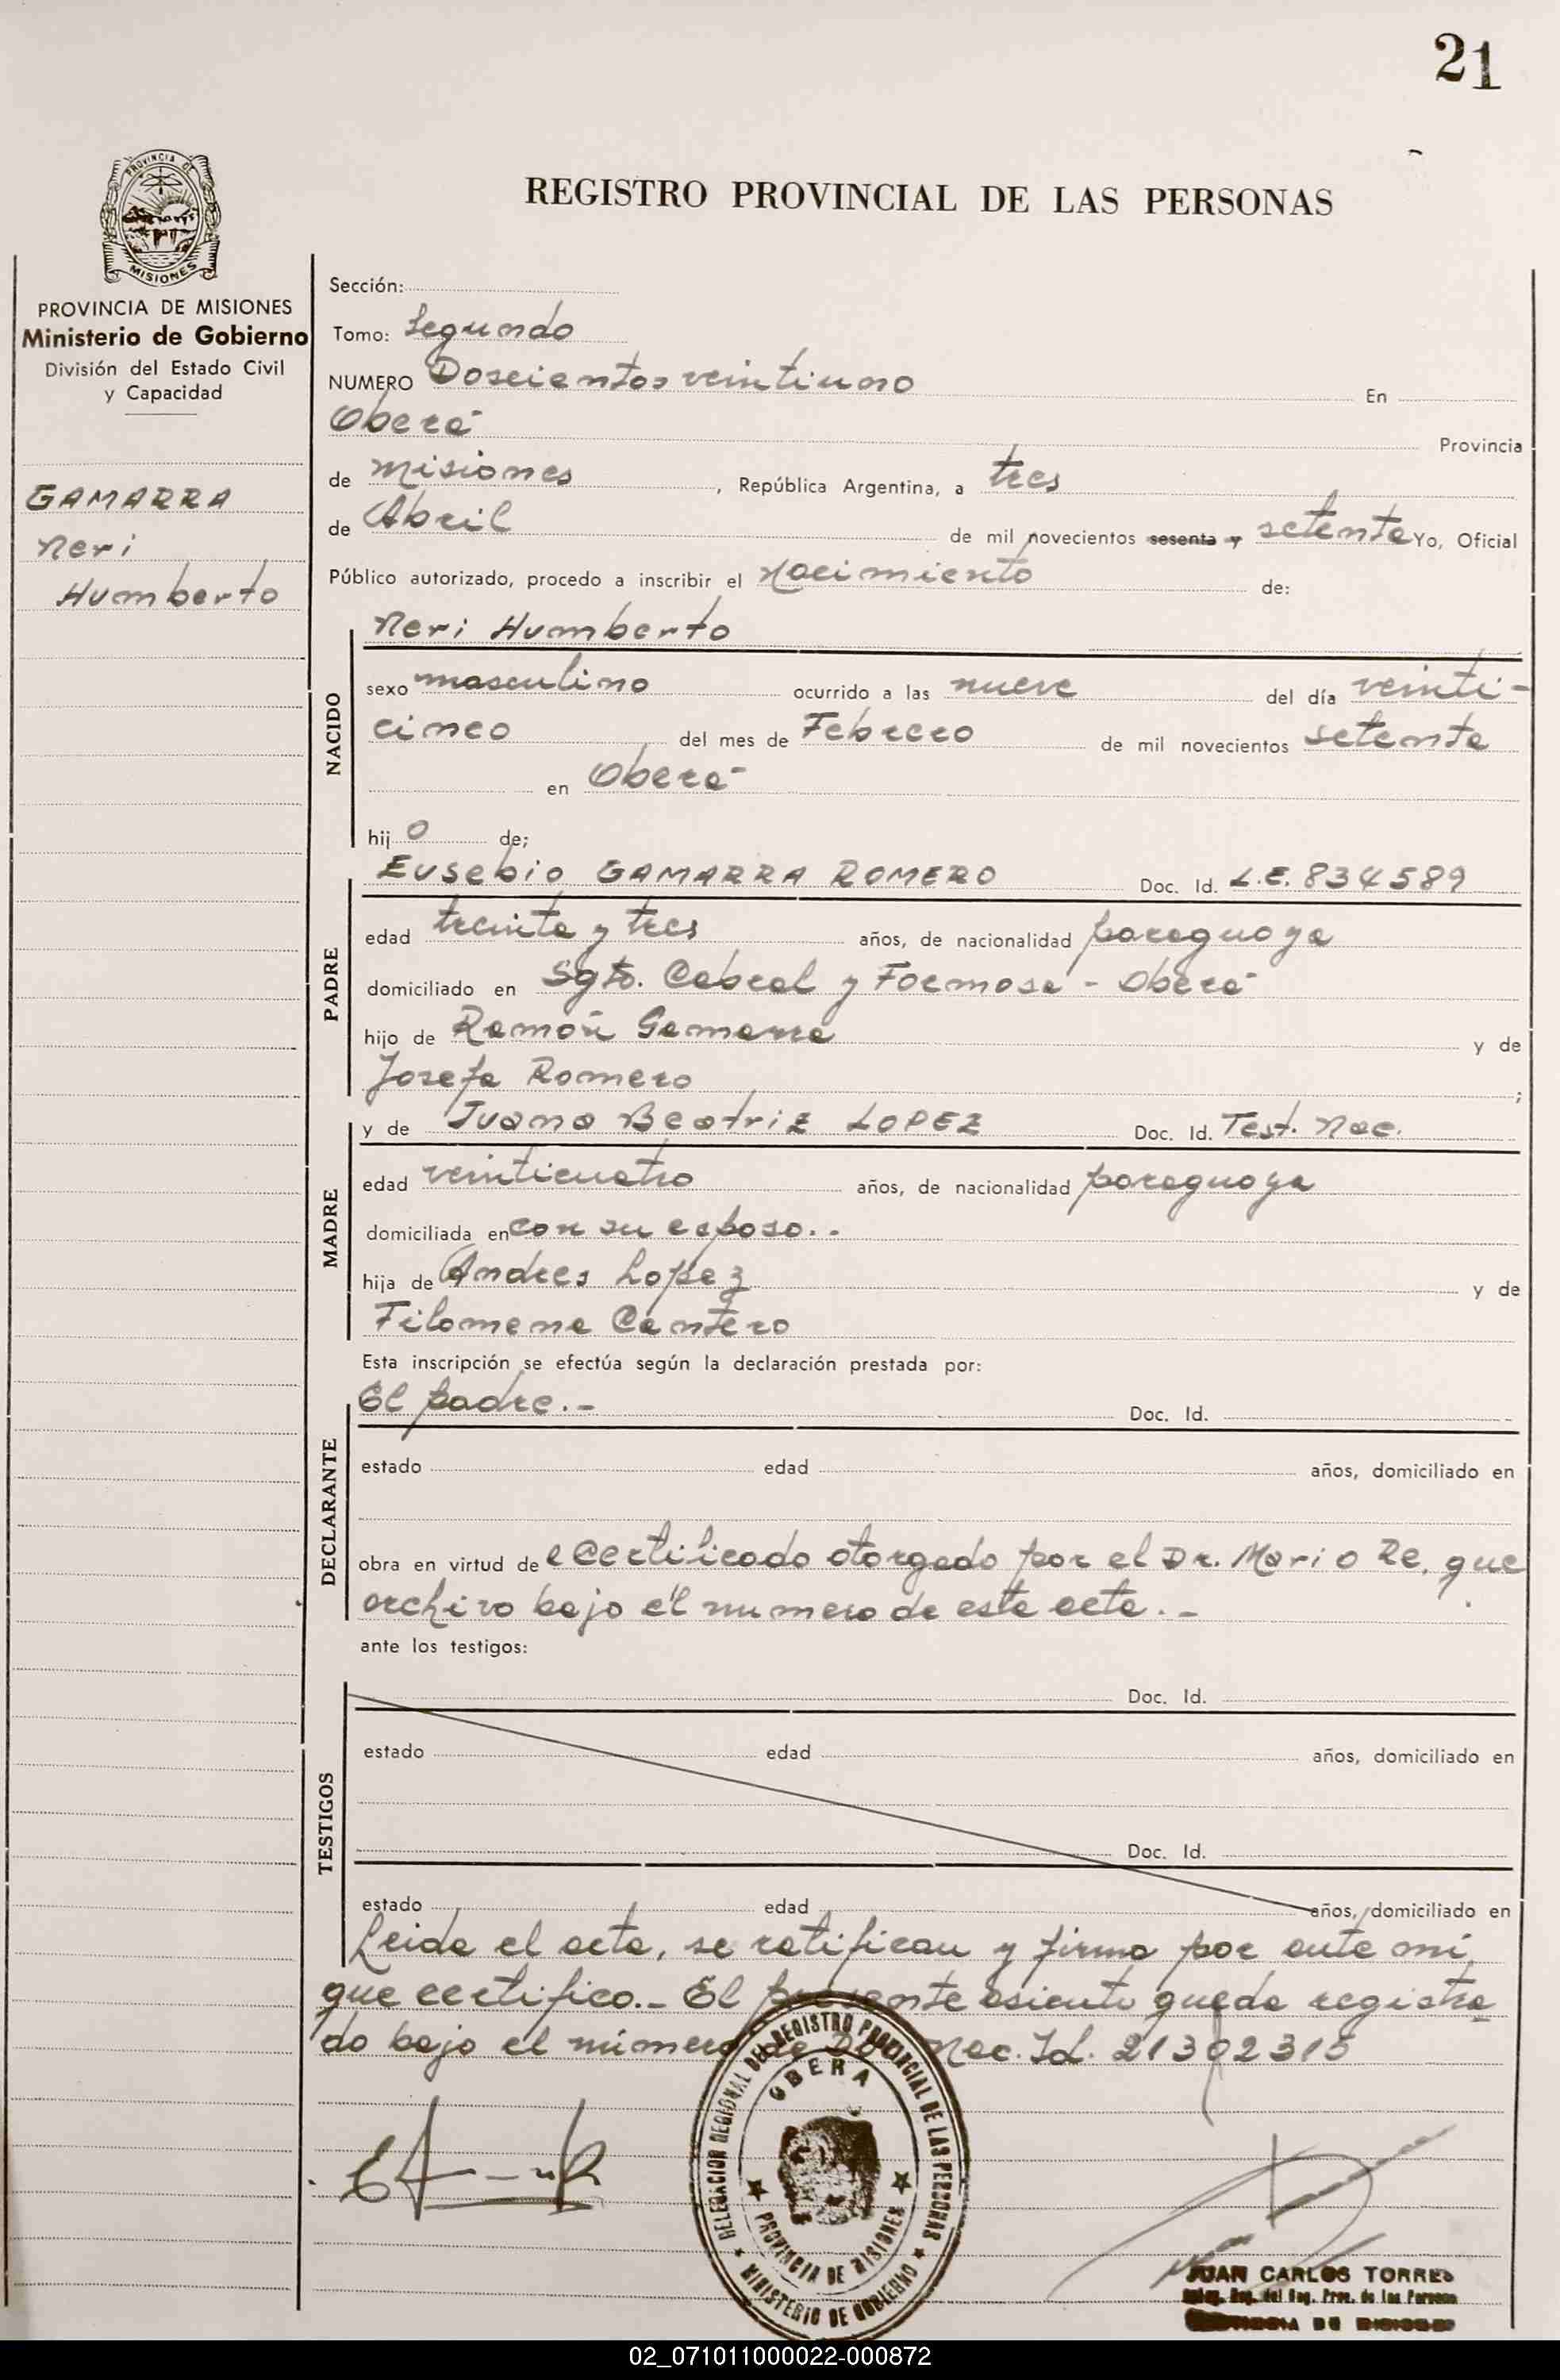 21
PROVINCIA DE
MISIONES
REGISTRO PROVINCIAL DE LAS PERSONAS
PROVINCIA DE MISIONES
Ministerio de Gobierno
División del Estado Civil
y Capacidad
GAMARRA
Neri
Humberto
Sección:
Tomo: Segundo
NUMERO Doscientos veintiuno En
Oberá Provincia
de Misiones, República Argentina, a tres
de Abril de mil novecientos sesenta y setenta Yo, Oficial
Público autorizado, procedo a inscribir el Nacimiento de:
NACIDO
Neri Humberto
sexo masculino ocurrido a las nueve del día veinti-
cinco del mes de Febrero de mil novecientos setenta
en Oberá
hij o de;
PADRE
Eusebio GAMARRA ROMERO Doc. Id. L.E. 834589
edad treinta y tres años, de nacionalidad paraguaya
domiciliado en Sgto. Cabral y Formosa - Oberá
hijo de Ramón Gamarra y de
Josefa Romero ;
MADRE
y de Juana Beatriz LOPEZ Doc. Id. Test. Nac.
edad veinticuatro años, de nacionalidad paraguaya
domiciliada en con su esposo..
hija de Andres Lopez y de
Filomena Cantero
Esta inscripción se efectúa según la declaración prestada por:
DECLARANTE
El padre.- Doc. Id.
estado edad años, domiciliado en
obra en virtud de Certificado otorgado por el Dr. Mario Re, que
archivo bajo el numero de este acta.-
ante los testigos:
TESTIGOS
Doc. Id.
estado edad años, domiciliado en
Doc. Id.
estado edad años, domiciliado en
Leida el acta, se ratifican y firma por ante mi
que certifico.- El presente asiento queda registra
do bajo el número de Doc. Nac. Id. 21302315
DELEGACION REGIONAL DEL REGISTRO PROVINCIAL DE LAS PERSONAS
OBERA
PROVINCIA DE MISIONES
MINISTERIO DE GOBIERNO
JUAN CARLOS TORRES
Reg. del Reg. Prov. de las Personas
PROVINCIA DE MISIONES
02_071011000022-000872